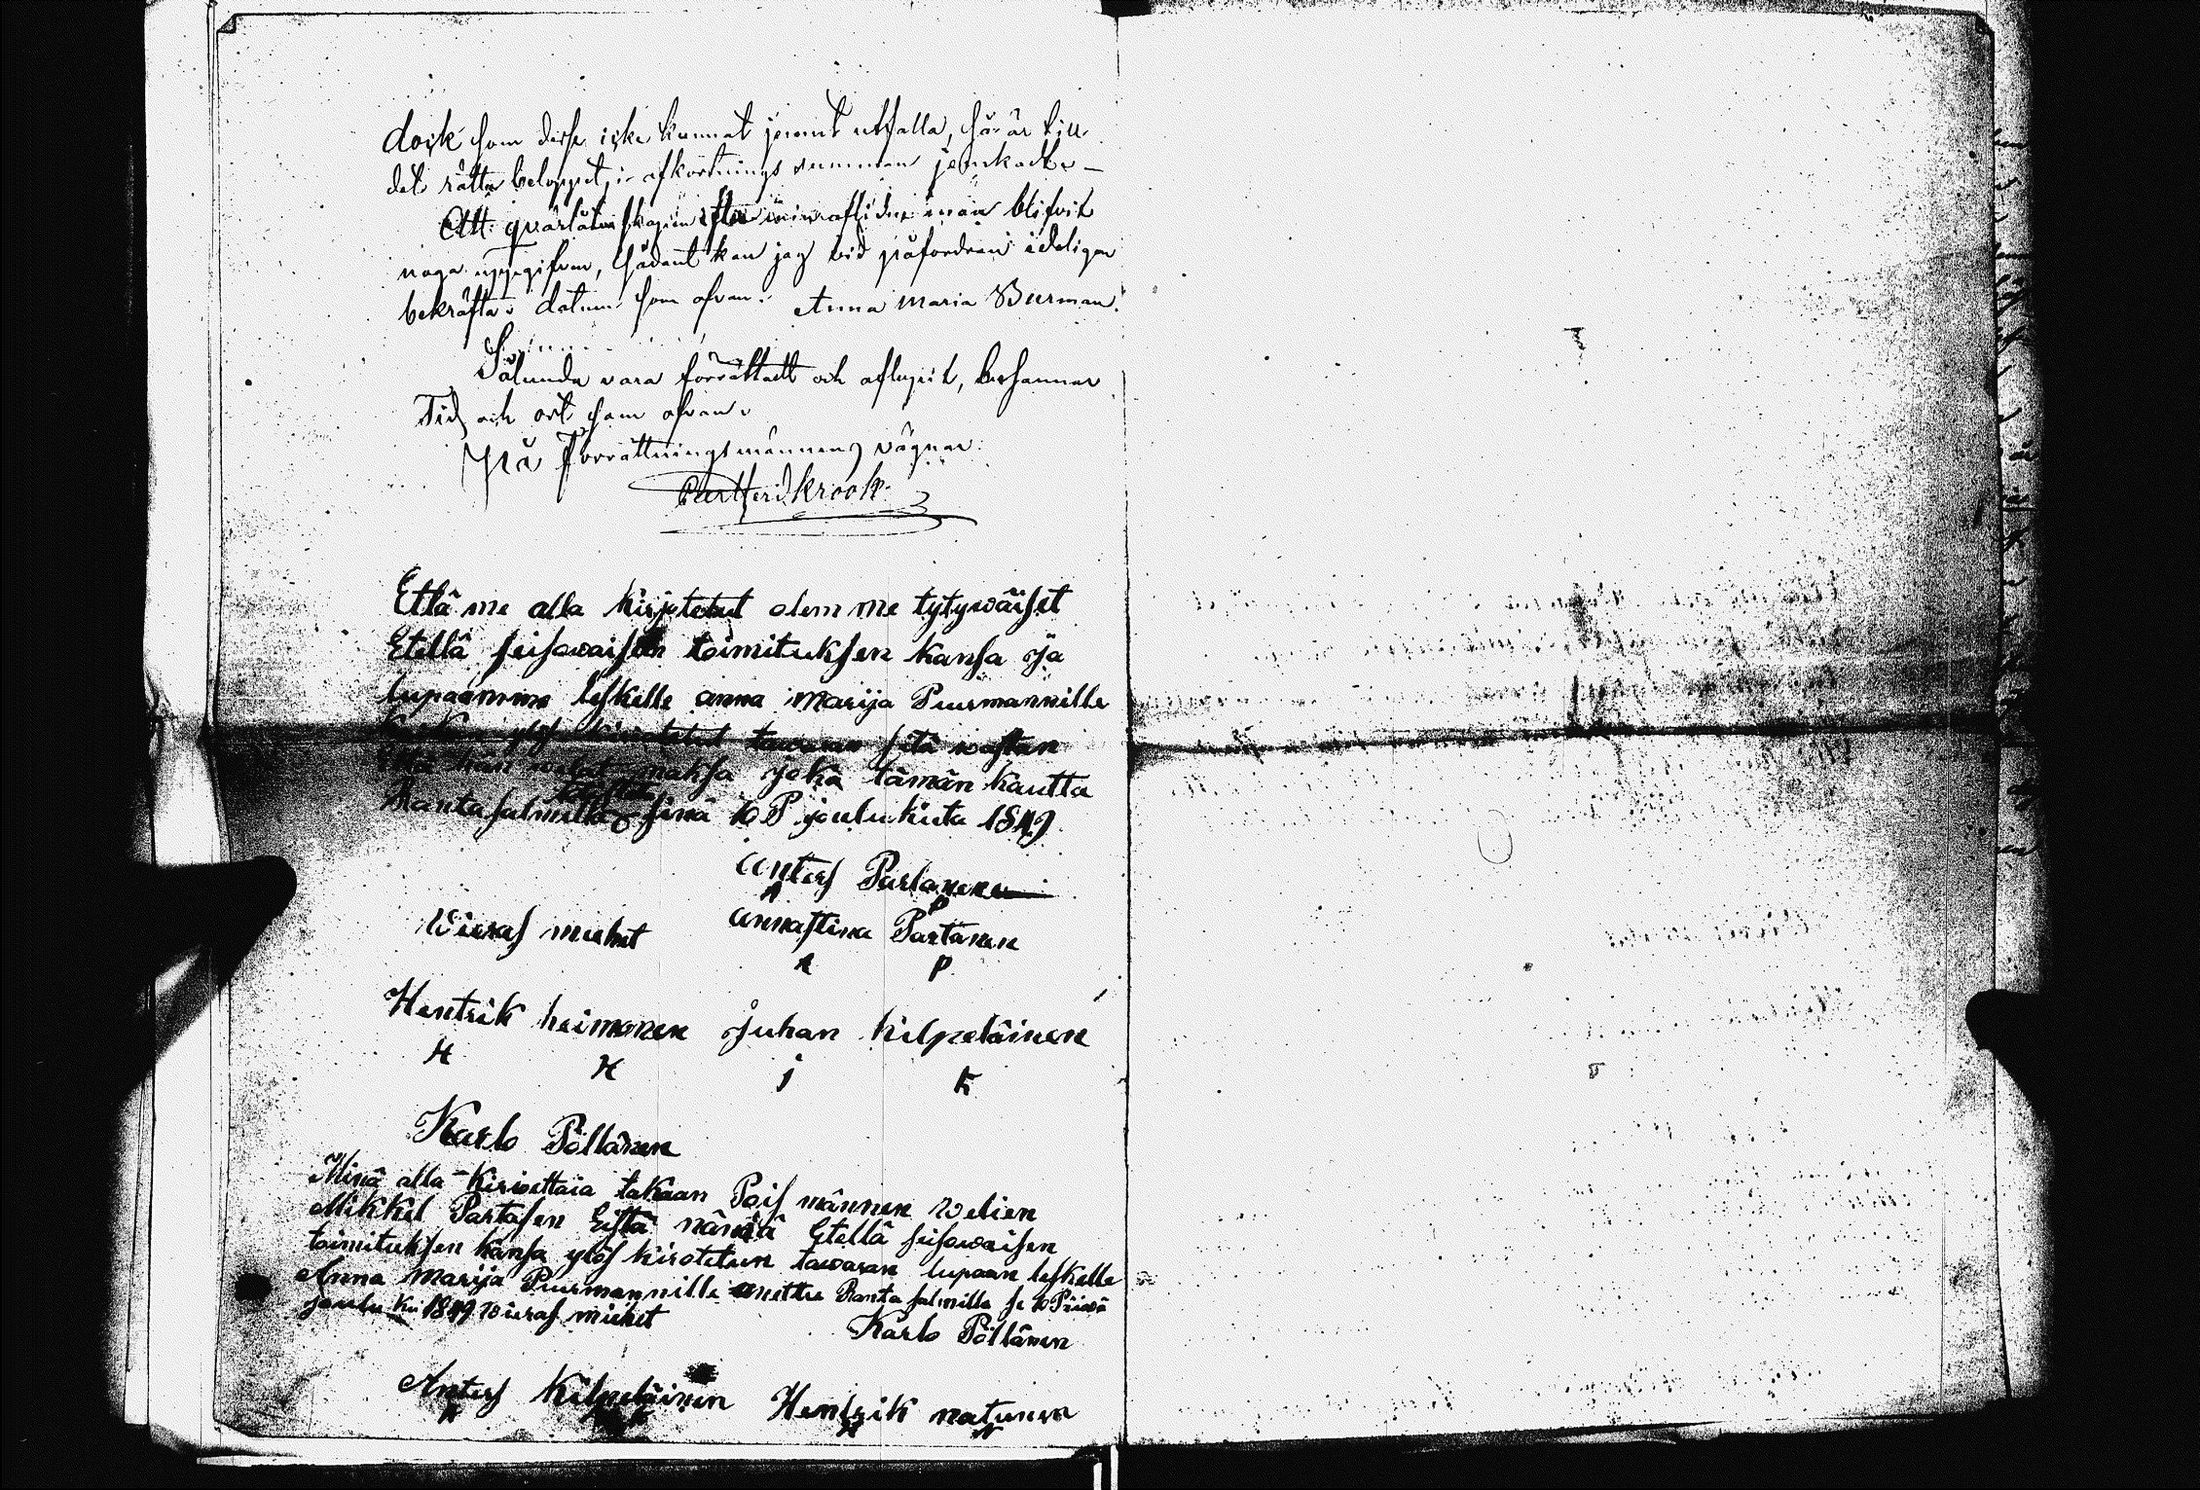 dock som desse icke kunnat jemnt utfalla, så är till
det rätta beloppet, i afkortnings summan jemkadt. —
Att qvarlåtenskapen efter min aflidne man blifvit
noga uppgifven, sådant kan jag vid påfordran edeligen
bekräfta. datum som ofvan. Anna Maria Burman.
Sålunda vara förrättadt och aflupit, bekänner
Tid och ort som ofvan.
På Förrättningsmännens vägnar.
Krook
Että me alla kirjotetut olem me tytywäiset
Etellä seisowaisen toimituksen kansa ja
lupaamme leskelle anna Marija Puurmannille
ylös tawaran sitä wastan
Että hän welat maksa joka tämän kautta
Ranta salmella sinä 10 P joulukuta 1849
Anters Partanen
A P
Wieras miehet annastina Partanen
A P
Hentrik heimonen Juhan kilpeläinen
H H j K
Karlo Pöllänen
Minä alla kirioettaia takaan Pois männen welien
Mikkel Partasen Eistä nämätä Etellä seisowaisen
toimituksen kansa ylös kirotetuen tawaran lupaan leskelle
Anna Marija Puurmannille anettu Ranta salmilla se 10 Päiwä
joulu ku 1849 wieras miehet
Karlo Pöllänen
Anters Kilpeläinen Hentrik natunen
A K H N